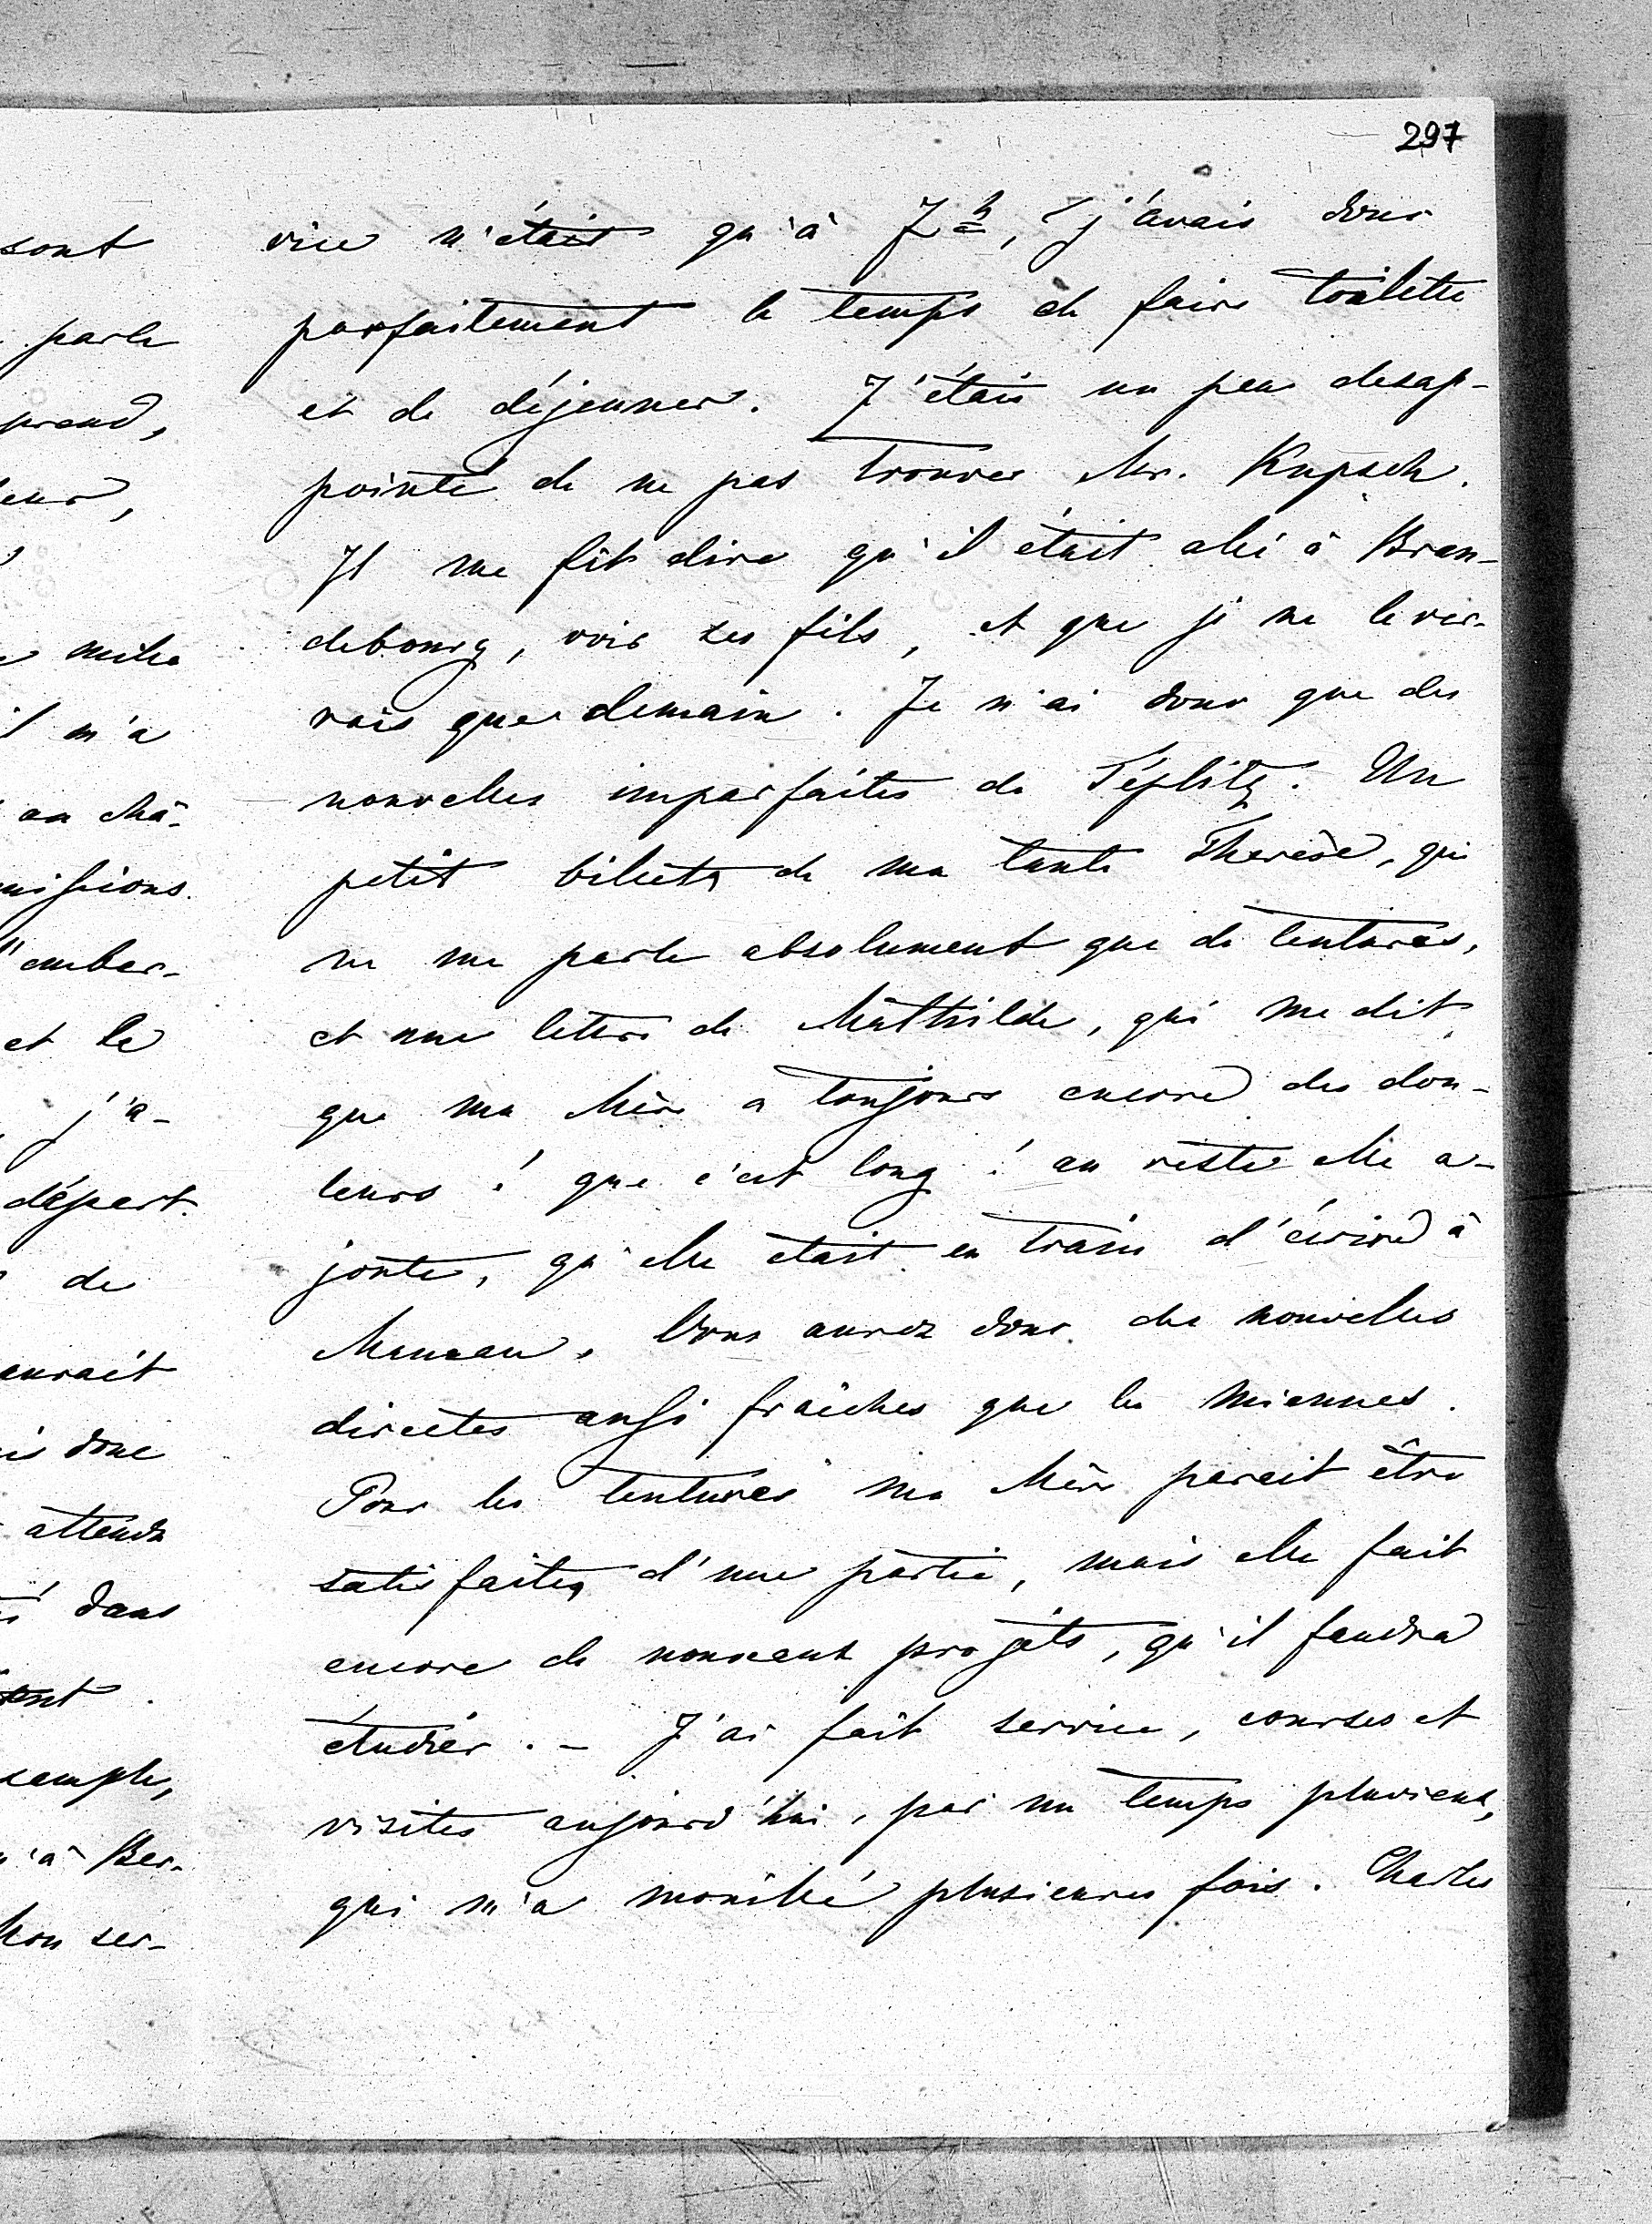 297
vice n'était qu'à 7 h, j'avais donc
parfaitement le temps de faire toilette
et de déjeuner. J'étais un peu desap-
pointé de ne pas trouver Mr. Kupsch.
Il me fit dire qu'il était allé à Bran-
debourg, voir ses fils, et que je ne le ver-
rais que demain. Je n'ai donc que des
nouvelles imparfaites de Téplitz. Un
petit billets de ma tante Therèse, qui
ne me parle absolument que de tentures,
et une lettre de Mathilde, qui me dit
que ma Mère a toujours encore des dou-
leurs! que c'est long! au reste elle a-
joute, qu'elle était en train d'écrire à
Maman. Vous aurez donc des nouvelles
directes aussi fraîches que les miennes.
Pour les tentures ma Mère parait être
satisfaite, d'une partie, mais elle fait
encore de nouveaux projets, qu'il faudra
étudier. - J'ai fait service, courses et
visites aujourd'hui, par un temps pluvieux,
qui m'a mouillé plusieures fois. Charles
sont
parle
prend,
m'a
au châ-
missions.
embar-
et le
j'a-
départ.
de
aurait
donc
attendu
dans
à Ber-
Mon ser-